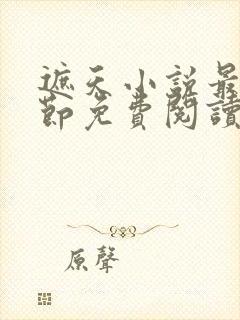 遮天小說最
節免費閱讀
原聲